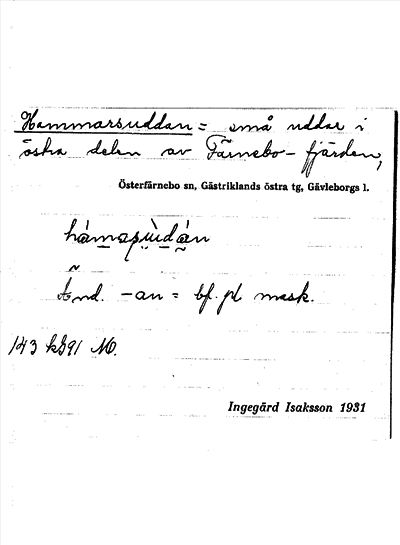 Hammarsuddan = små uddar i
östra delen av Färnebo-fjärden,
Österfärnebo sn, Gästriklands östra tg, Gävleborgs l.
hàmaṣùdán
Änd. -an = bf. pl mask.
143
Ingegärd Isaksson 1931